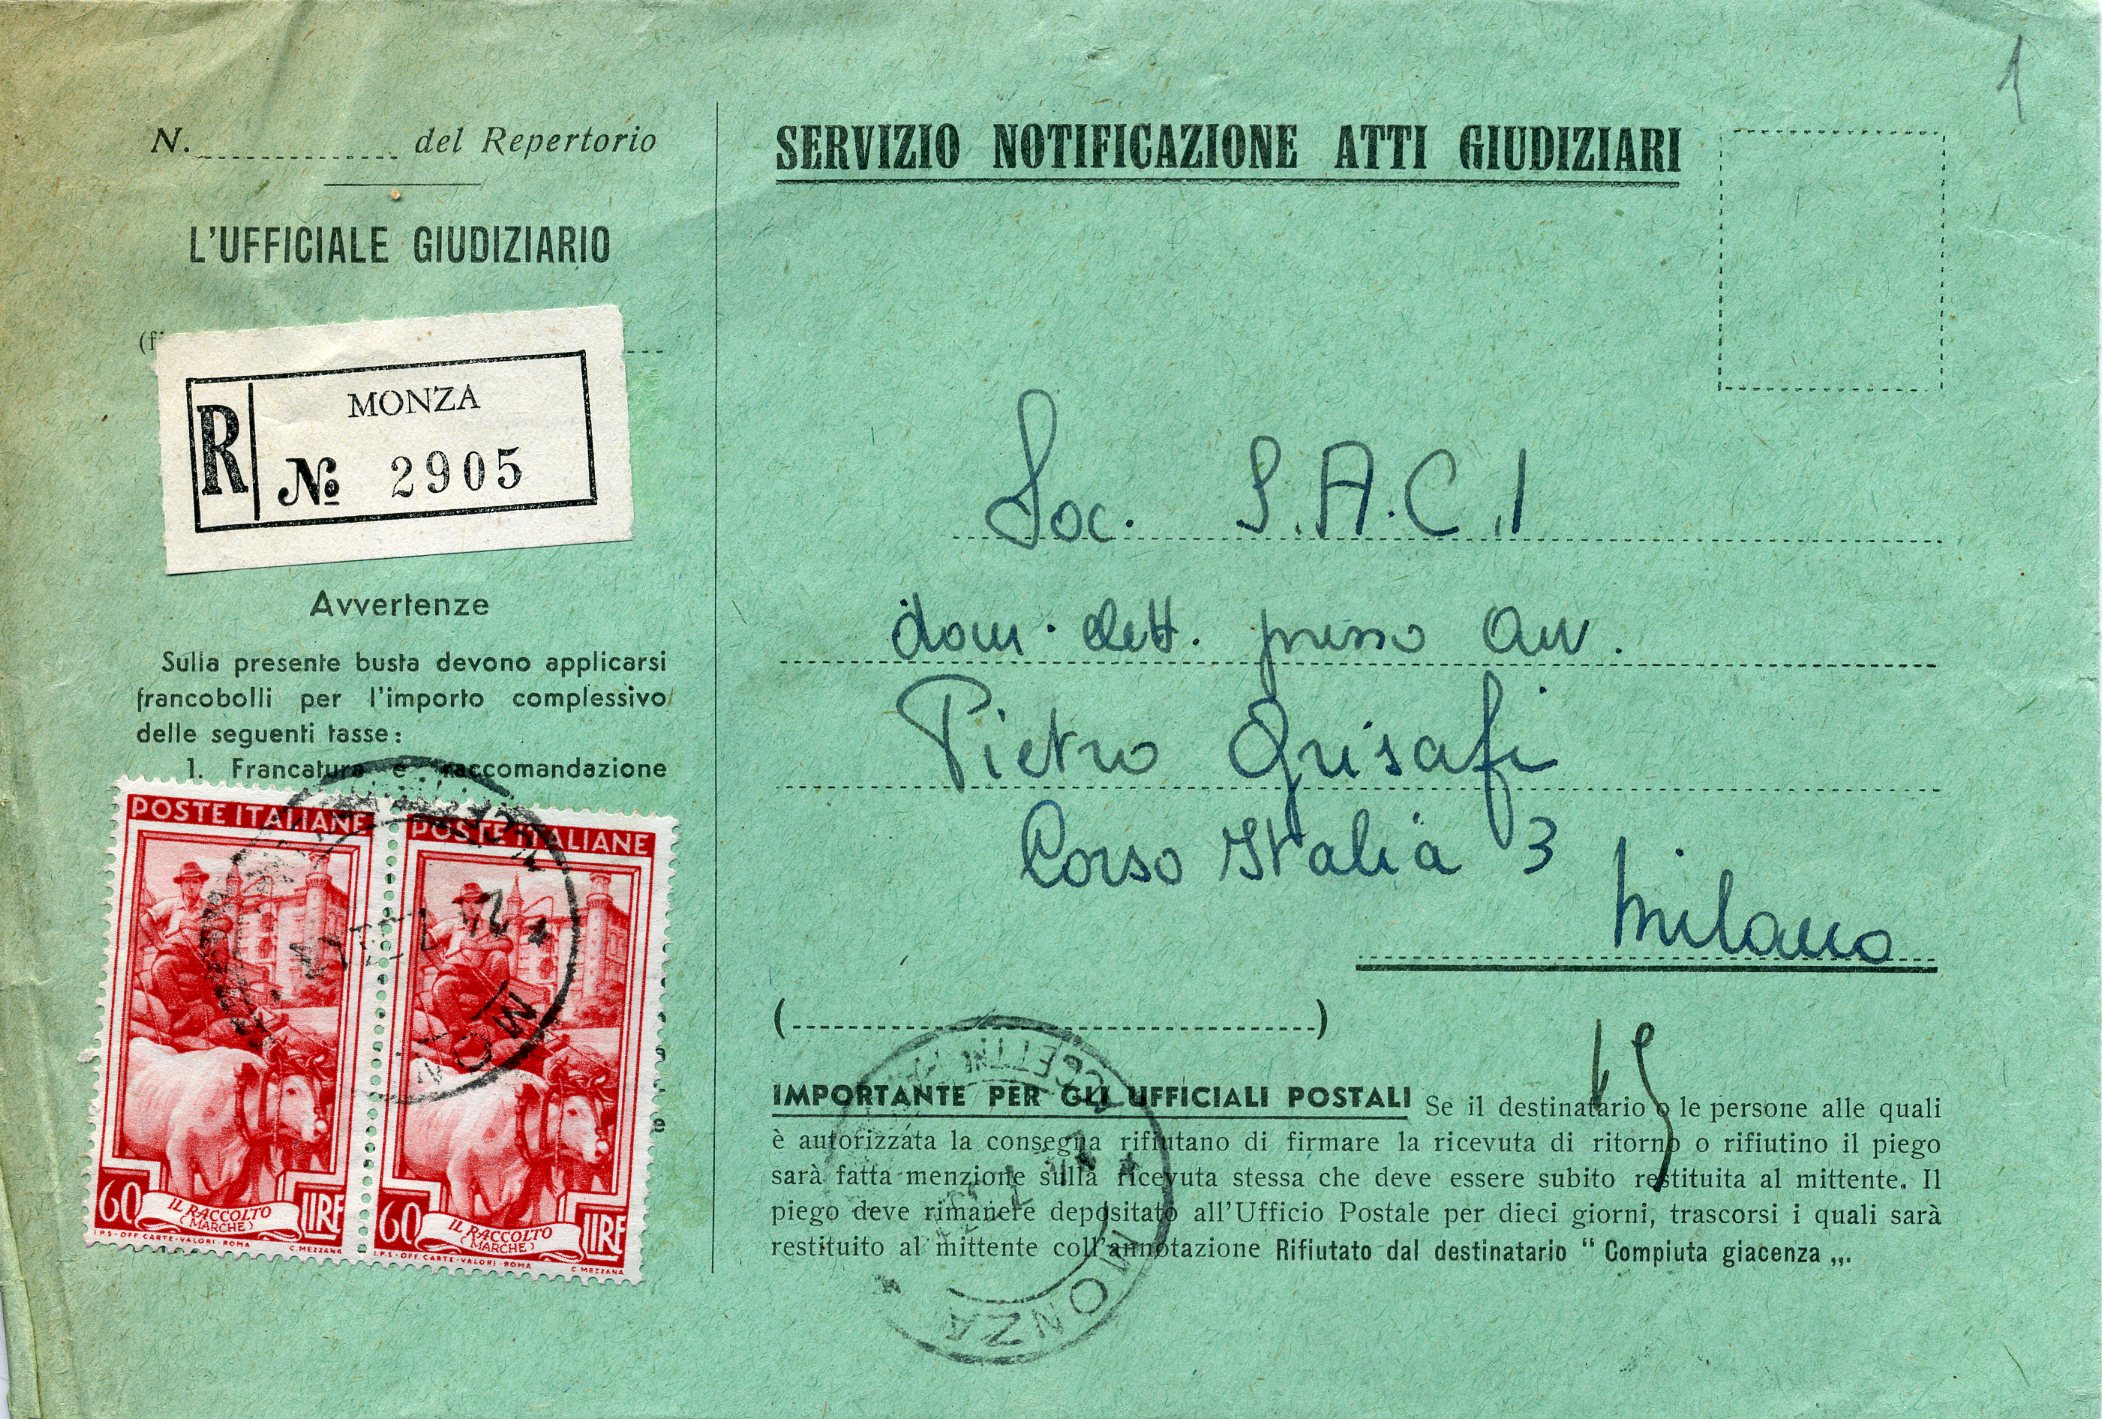 1
N. del Repertorio
L'UFFICIALE GIUDIZIARIO
R
MONZA
№ 2905
Avvertenze
Sulla presente busta devono applicarsi
francobolli per l'importo complessivo
delle seguenti tasse:
1. Francatura e raccomandazione
POSTE ITALIANE
60 LIRE
IL RACCOLTO
(MARCHE)
I.P.S - OFF. CARTE-VALORI - ROMA
C. MEZZANA
POSTE ITALIANE
60 LIRE
IL RACCOLTO
(MARCHE)
I.P.S - OFF. CARTE-VALORI - ROMA
C. MEZZANA
SERVIZIO NOTIFICAZIONE ATTI GIUDIZIARI
Soc. S.A.C.I
dom. elett. presso Avv.
Pietro Grisafi
Corso Italia 3
Milano
( )
IMPORTANTE PER GLI UFFICIALI POSTALI Se il destinatario o le persone alle quali
è autorizzata la consegna rifiutano di firmare la ricevuta di ritorno o rifiutino il piego
sarà fatta menzione sulla ricevuta stessa che deve essere subito restituita al mittente. Il
piego deve rimanere depositato all'Ufficio Postale per dieci giorni, trascorsi i quali sarà
restituito al mittente coll'annotazione Rifiutato dal destinatario “ Compiuta giacenza „.
MONZA